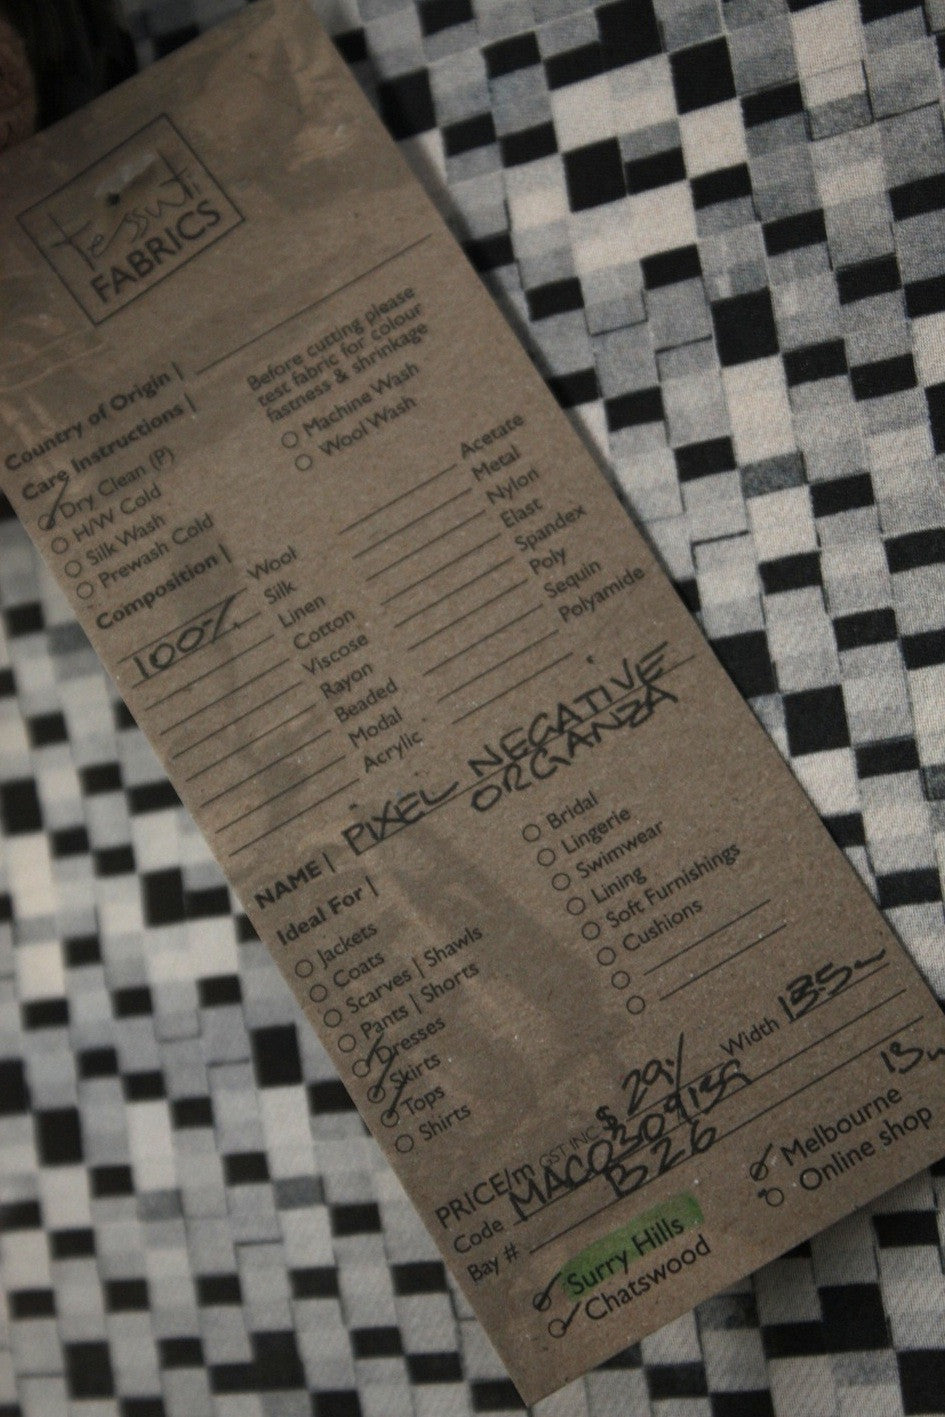 tessuti
FABRICS
Country of Origin |
Care Instructions |
Before cutting please
test fabric for colour
fastness & shrinkage
Dry Clean (P)
H/W Cold
Silk Wash
Prewash Cold
Machine Wash
Wool Wash
Composition |
Wool
100% Silk
Linen
Cotton
Viscose
Rayon
Beaded
Modal
Acrylic
Acetate
Metal
Nylon
Elast
Spandex
Poly
Sequin
Polyamide
NAME | PIXEL NEGATIVE
ORGANZA
Ideal For |
Jackets
Coats
Scarves | Shawls
Pants | Shorts
Dresses
Skirts
Tops
Shirts
Bridal
Lingerie
Swimwear
Lining
Soft Furnishings
Cushions
PRICE/m GST INC $ 29
Width 135
Code
Bay # B26
13
Surry Hills
Chatswood
Melbourne
Online shop